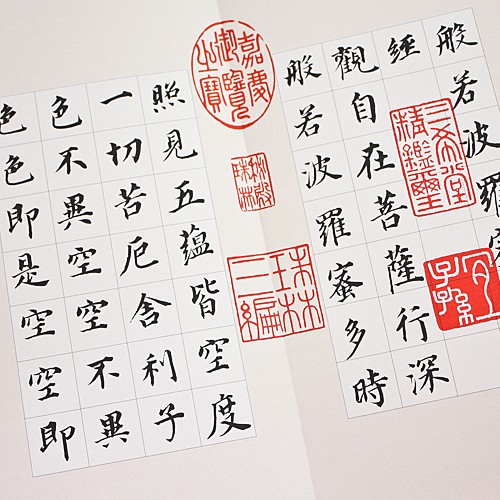 般若波羅蜜
經
觀自在菩薩行深
般若波羅蜜多時
照見五蘊皆空度
一切苦厄舍利子
色不異空空不異
色色即是空空即
嘉慶御覽之寶
秘殿珠林
珠林三編
三希堂精鑑璽
宜子孫